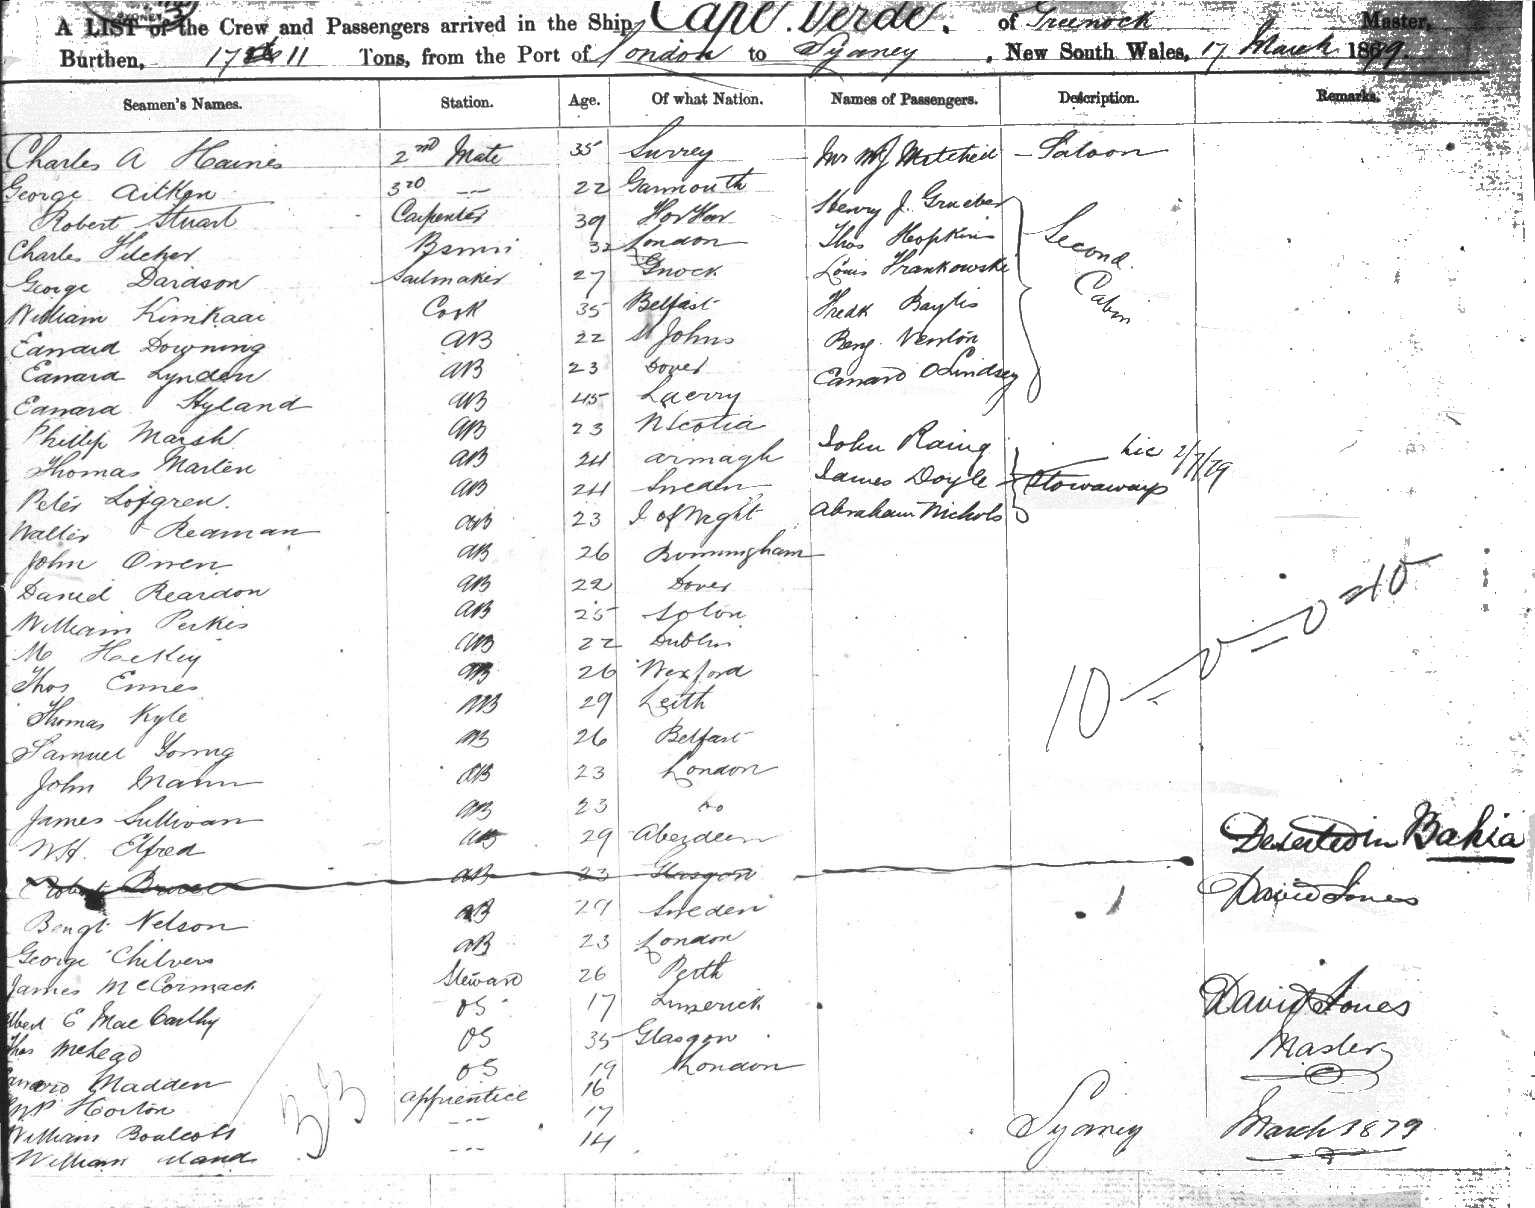 A LIST of the Crew and Passengers arrived in the Ship Cape Verde. of Greenock Master,
Burthen, 1711 Tons, from the Port of London to Sydney, New South Wales, 17 March 1879.
Seamen's Names. Station. Age. Of what Nation. Names of Passengers. Description. Remarks.
Charles A Haines 2nd Mate 35 Surrey Mr Mitchell Saloon
George Aitken 3rd --- 22 Garmouth Henry J. Grueber
Robert Stuart Carpenter 39 London Thos Hopkins Second Cabin
Charles Filcher 32 London Louis Frankowski
George Davidson Sailmaker 27 Gnock Fredk Baylis
William Cook 35 Belfast Benj. Venton
Edward Downing AB 22 St Johns Edward O Lindsey
Edward Lynden AB 23 Dover
Edward Hyland AB 45
Phillip Marsh AB 23 N Scotia John Raing
Thomas Marten AB 24 Armagh James Doyle Stowaways 2/7/79
Peter Lofgren. AB 24 Sweden Abraham Nichols
Walter Reaman AB 23 I of Wight
John Owen AB 26 Birmingham
Daniel Reardon AB 22 Dover
William Perkis AB 25
M AB 22 Dublin
Thos Ennes AB 26 Wexford
Thomas Kyle AB 29 Leith
Samuel Young AB 26 Belfast
John Mann AB 23 London
James Sullivan AB 23 Do
W H. Elfred AB 29 Aberdeen Deserted in Bahia
Robert Bruce AB 23 Glasgow David Jones
Bengt Nelson AB 29 Sweden
George Chilvers AB 23 London
James McCormack Steward 26 Perth
Albert E MacCarthy OS 17 Limerick David Jones
Thos McLeod OS 35 Glasgow Master
Edward Madden OS 19 London
Horton Apprentice 16
William Boulcott --- 17 Sydney March 1879
William --- 14
33